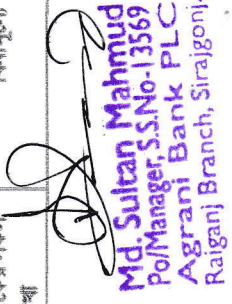 Md. Sultan Mahmud
Po/Manager, S.S.No-13569
Agrani Bank PLC
Raiganj Branch, Sirajgonj.